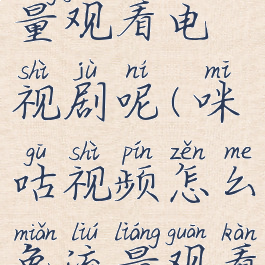 量观看电
shì jù ní mī
视剧呢(咪
gū shì pín zěn me
咕视频怎么
miǎn liú liàng guān kàn
免流量观看